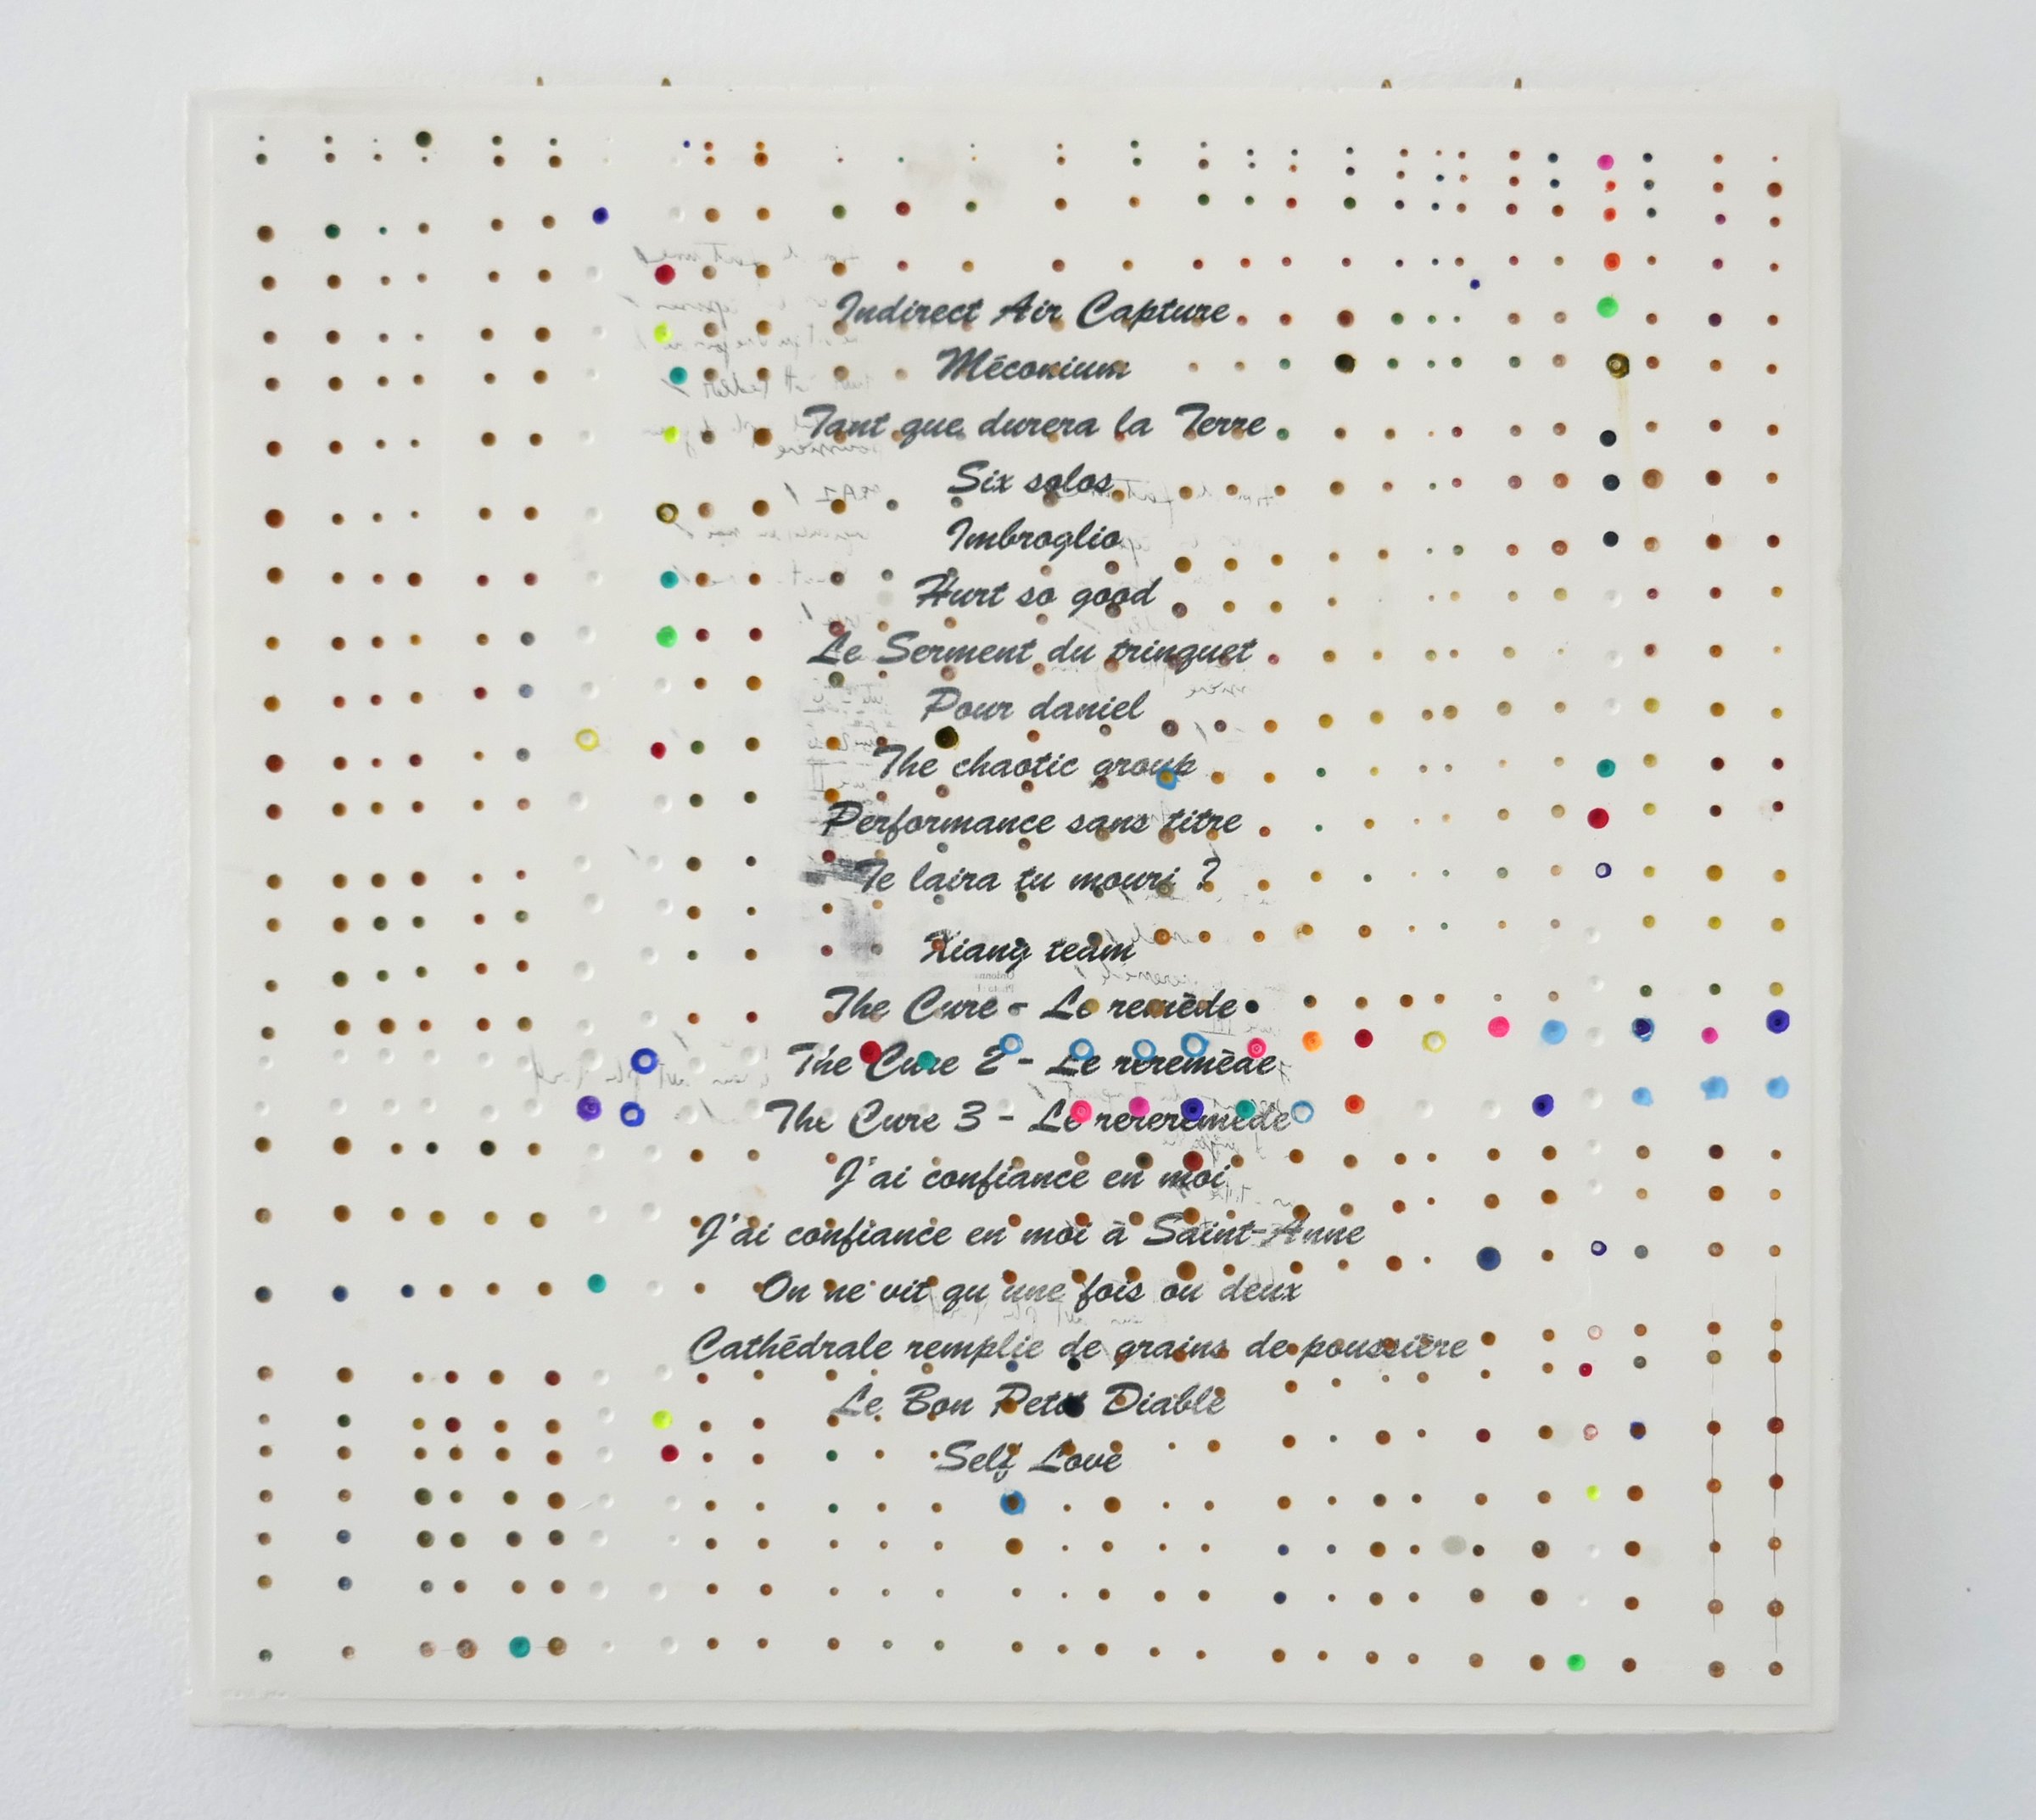 Indirect Air Capture
Méconium
Tant que durera la Terre
Six solos
Imbroglio
Hurt so good
Le Serment du trinquet
Pour daniel
The chaotic group
Performance sans titre
Te laira tu mouri ?
Xiang team
The Cure - Le remède
The Cure 2 - Le reremède
The Cure 3 - Le rereremède
J'ai confiance en moi
J'ai confiance en moi à Saint-Anne
On ne vit qu'une fois ou deux
Cathédrale remplie de grains de poussière
Le Bon Petit Diable
Self Love